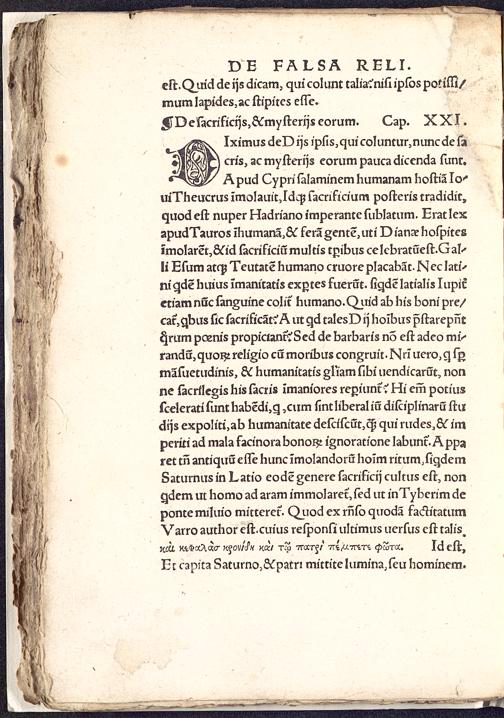 DE FALSA RELI.
est. Quid de ijs dicam, qui colunt talia? nisi ipsos potissi/
mum lapides, ac stipites esse.
¶ De sacrificijs, & mysterijs eorum. Cap. XXI.
DIximus de Dijs ipsis, qui coluntur, nunc de sa
cris, ac mysterijs eorum pauca dicenda sunt.
Apud Cypri salaminem humanam hostiā Io-
ui Theucrus īmolauit, Idqꝫ sacrificium posteris tradidit,
quod est nuper Hadriano imperante sublatum. Erat lex
apud Tauros īhumanā, & ferā gentē, uti Dianæ hospites
īmolarēt, & id sacrificiū multis tꝑibus celebratū est. Gal-
li Esum atqꝫ Teutatē humano cruore placabāt. Nec lati-
ni qdē huius īmanitatis exꝑtes fuerūt. siqdē latialis Iupit̄
etiam nūc sanguine colit̄ humano. Quid ab his boni pre/
cat̄, qbus sic sacrificāt? Aut qd tales Dij hoībus p̄stare pn̄t
qrum pœnis propiciant̄? Sed de barbaris nō est adeo mi-
randū, quoꝝ religio cū moribus congruit. Nr̄i uero, q sꝑ
māsuetudinis, & humanitatis gl̄iam sibi uendicarūt, non
ne sacrilegis his sacris īmaniores reꝑiunt̄? Hi em̄ potius
scelerati sunt habēdi, q, cum sint liberaliū disciplinarū stu
dijs expoliti, ab humanitate desciscūt, q̄ꝫ qui rudes, & im
periti ad mala facinora bonoꝝ ignoratione labunt̄. Appa
ret tn̄ antiquū esse hunc īmolandorū hoīm ritum, siqdem
Saturnus in Latio eodē genere sacrificij cultus est, non
qdem ut homo ad aram immolaret̄, sed ut in Tyberim de
ponte miluio mitteret̄. Quod ex rn̄so quodā factitatum
Varro author est. cuius responsi ultimus uersus est talis
καὶ κεφαλὰσ κρονίδη καὶ τῷ πατρὶ πέμπετε φῶτα. Id est,
Et capita Saturno, & patri mittite lumina, seu hominem.